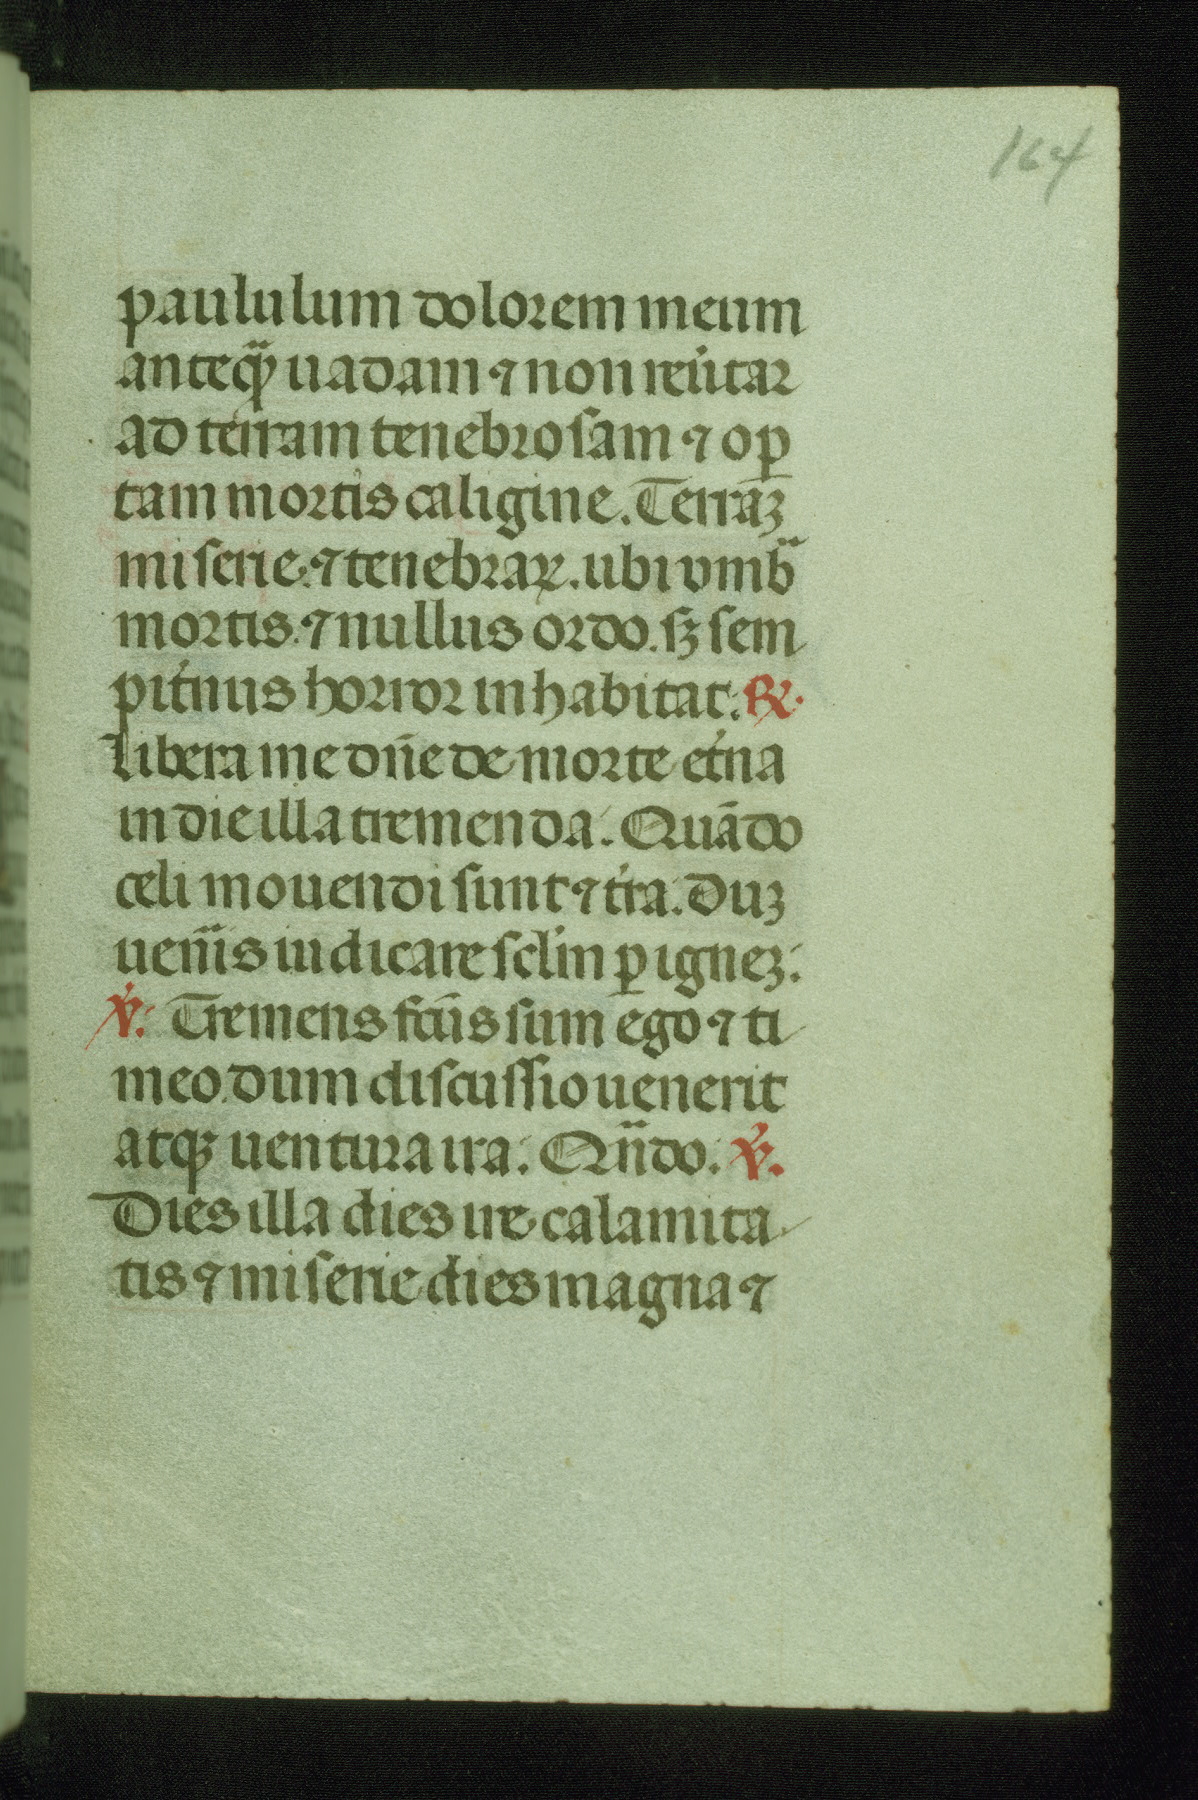 164
paululum dolorem meum
anteqᷓ uadam ⁊ non reu̾tar
ad terram tenebrosam ⁊ op̲
tam mortis caligine. Terraꝫ
miserie ⁊ tenebraꝝ. ubi vmbᷓ
mortis. ⁊ nullus ordo. sꝫ sem
pit̾nus horror inhabitat. ℟.
Libera me dn̄e de morte et̾na
in die illa tremenda. Quādo
celi mouendi sunt ⁊ t̾ra. Duꝫ
uen̾is iudicare sclm̄ ꝑ igneꝫ.
℣. Tremens fcūs sum ego ⁊ ti
meo. dum discussio uenerit
atqꝫ uentura ira. Qn̄do. ℣.
Dies illa dies ire calamita
tis ⁊ miserie dies magna ⁊